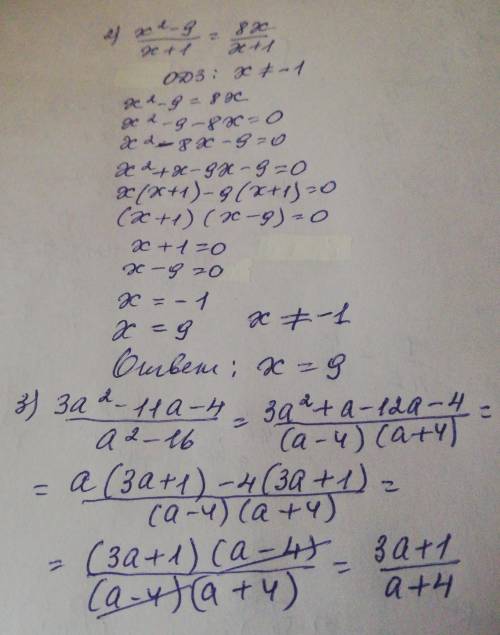 2) x²-9/x+1 = 8x/x+1
ОДЗ: x ≠ -1
x²-9 = 8x
x²-9-8x=0
x²-8x-9=0
x²+x-9x-9=0
x(x+1)-9(x+1)=0
(x+1)(x-9)=0
x+1=0
x-9=0
x = -1
x = 9 x ≠ -1
Ответ: x = 9
3) 3a²-11a-4/a²-16 = 3a²+a-12a-4/(a-4)(a+4) =
= a(3a+1)-4(3a+1)/(a-4)(a+4) =
= (3a+1)(a-4)/(a-4)(a+4) = 3a+1/a+4